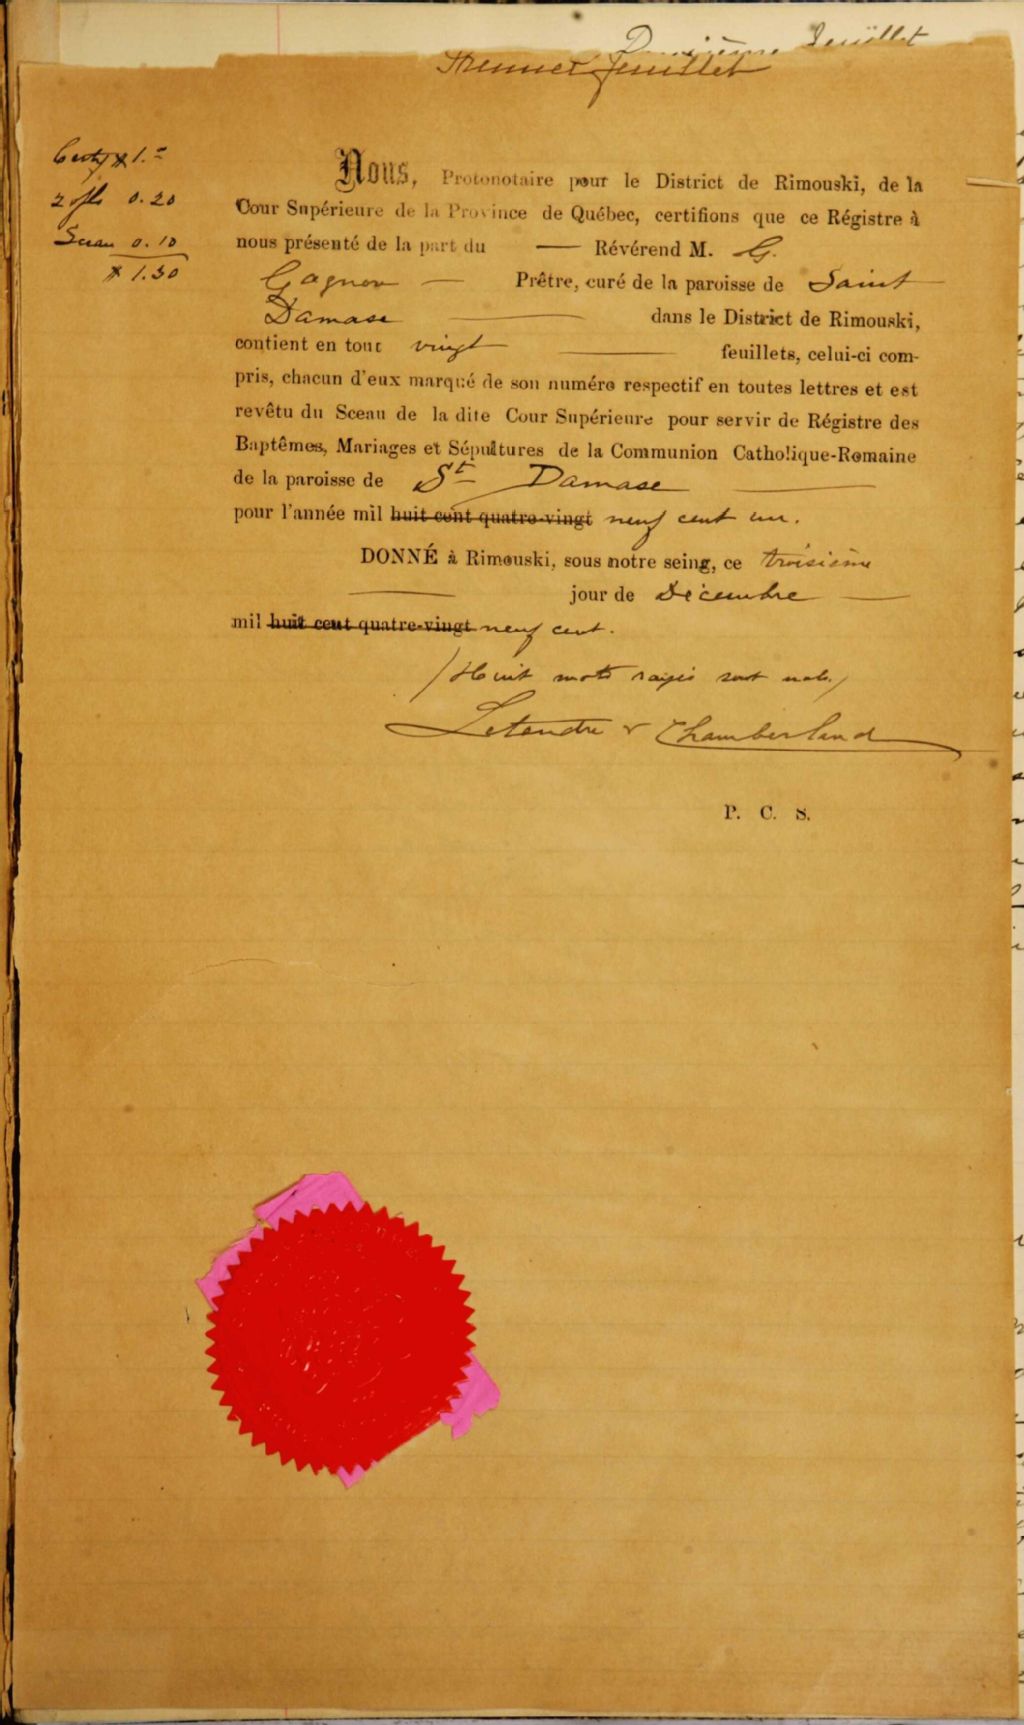 Deuxième feuillet
Premier feuillet
Certif $ 1.=
20 fls 0.20
Sceau 0.10
$ 1.30
Nous, Protonotaire pour le District de Rimouski, de la
Cour Supérieure de la Province de Québec, certifions que ce Régistre à
nous présenté de la part du — Révérend M. G.
Gagnon — Prêtre, curé de la paroisse de Saint
Damase — dans le District de Rimouski,
contient en tout vingt — feuillets, celui-ci com-
pris, chacun d'eux marqué de son numéro respectif en toutes lettres et est
revêtu du Sceau de la dite Cour Supérieure pour servir de Régistre des
Baptêmes, Mariages et Sépultures de la Communion Catholique-Romaine
de la paroisse de St Damase —
pour l'année mil huit cent quatre-vingt neuf cent un.
DONNÉ à Rimouski, sous notre seing, ce troisième
— jour de Décembre —
mil huit cent quatre-vingt neuf cent.
/Huit mots rayés sont nuls/
Letendre & Chamberland
P. C. S.